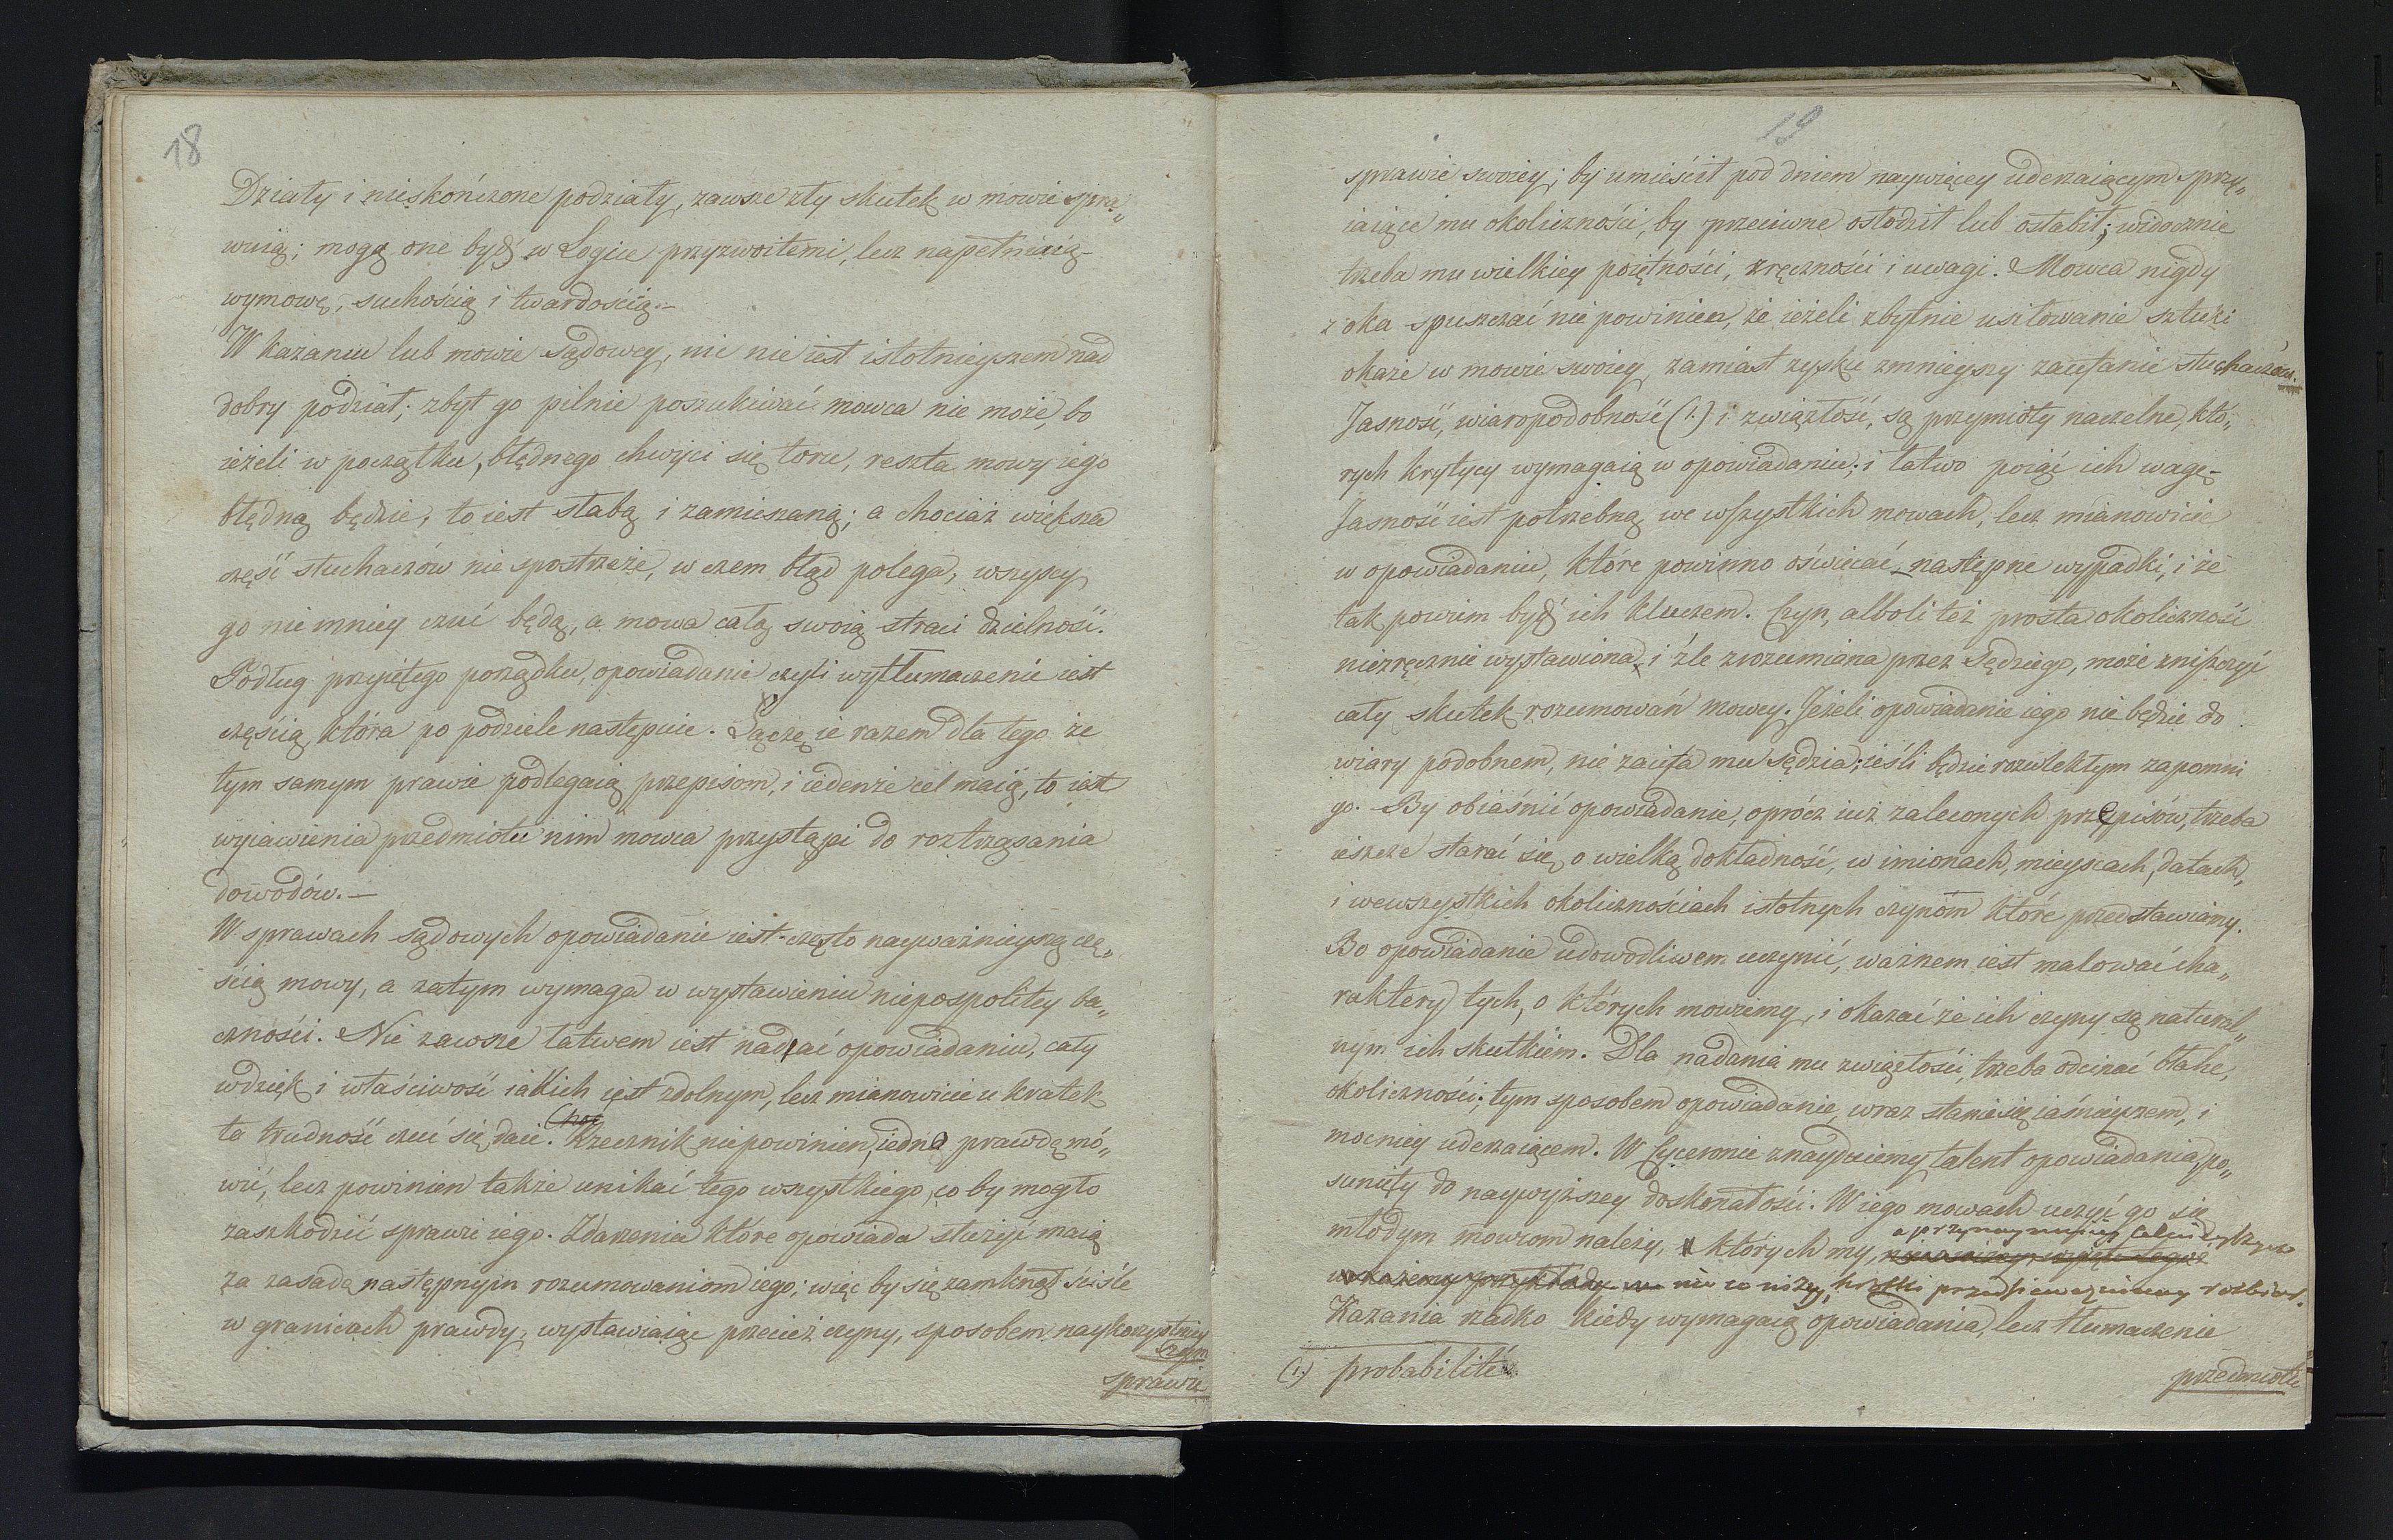 18
Działy i nieskończone podziały, zawsze zły skutek w mowie spra„
wuią; mogą one bydź w Logice przyzwoitemi, lecz napełniaią
wymowę, suchością i twardością.–
W kazaniu lub mowie Sądowey, nic nie iest istotnieyszem nad
dobry podział; zbyt go pilnie poszukiwać mowca nie może, bo
ieżeli w początku, błędnego chwyci się toru, reszta mowy iego
błędną będzie, to iest słabą i zamieszaną; a chociaż większa
część słuchaczów nie spostrzeże, w czem błąd polega, wszyscy
go nie mniey czuć będą, a mowa całą swoią straci dzielność.
Podług przyiętego porządku, opowiadanie czyli wytłumaczenie iest
częścią która po podziele następuie. Łączę ie razem dla tego że
tym samym prawie podlegaią przepisom, i iedenże cel maią, to iest
wyiawienia przedmiotu nim mowca przystąpi do roztrząsania
dowodów.—
W sprawach sądowych opowiadanie iest często nayważnieyszą czę„
ścią mowy, a zatym wymaga w wystawieniu niepospolitey ba„
czności. Nie zawsze łatwem iest nadać opowiadaniu, cały
wdzięk i właściwość iakich iest zdolnym, lecz mianowicie u kratek
ta trudność czuć się daie. Rzecznik niepowinien, iedną prawdę mó„
wić, lecz powinien także unikać tego wszystkiego, co by mogło
zaszkodzić sprawie iego. Zdarzenia które opowiada służyć maią
za zasadę następnym rozumowaniom iego; więc by się zamknął ściśle
w granicach prawdy, wystawiaiąc przecież czyny, sposobem naykorzystniey
szym
sprawie
19
sprawie swoiey; by umieścił pod dniem naywięcey uderzaiącym sprzy„
iaiące mu okoliczności, by przeciwne osłodził lub osłabił; widocznie
trzeba mu wielkiey poiętności, zręczności i uwagi. Mowca nigdy
z oka spuszczać nie powinien, że ieżeli zbytnie usiłowanie sztuki
okaże w mowie swoiey, zamiast zysku zmnieyszy zaufanie słuchaczów.
Jasność, wiaropodobność (1.) i zwięzłość, są przymioty naczelne, któ„
rych krytycy wymagaią w opowiadaniu; i łatwo poiąć ich wagę.–
Jasność iest potrzebną we wszystkich mowach, lecz mianowicie
w opowiadaniu, które powinno oświecać następne wypadki, i że
tak powiem bydź ich kluczem. Czyn, alboli też prosta okoliczność
niezręcznie wystawiona, i źle zrozumiana przez Sędziego, może zniszczyć
cały skutek rozumowań mowcy. Jeżeli opowiadanie iego nie będzie do
wiary podobnem, nie zaufa mu sędzia; ieśli będzie rozwlekłym zapomni
go. By obiaśnić opowiadanie, oprócz iuż zaleconych przepisów, trzeba
ieszcze starać się, o wielką dokładność, w imionach, mieyscach, datach,
i wewszystkich okolicznościach istotnych czynom które przedstawiamy.
Bo opowiadanie udowodliwem uczynić, ważnem iest malować cha„
raktery tych, o których mowiemy, i okazać że ich czyny są natural„
nym ich skutkiem. Dla nadania mu zwięzłości, trzeba odcinać błahe,
okoliczności; tym sposobem opowiadanie, wraz stanie się iaśnieyszem, i
mocniey uderzaiącem. W Cyceronie znaydziemy talent opowiadania, po„
sunięty do naywyższey doskonałości. W iego mowach uczyć go się
młodym mowcom należy, których my,
a przynaymniey
niżey, krotki przedsiewezmiemy rozbior.
Kazania rzadko kiedy wymagaią opowiadania, lecz tłumaczenie
(1.) probabilité
przedmiotu